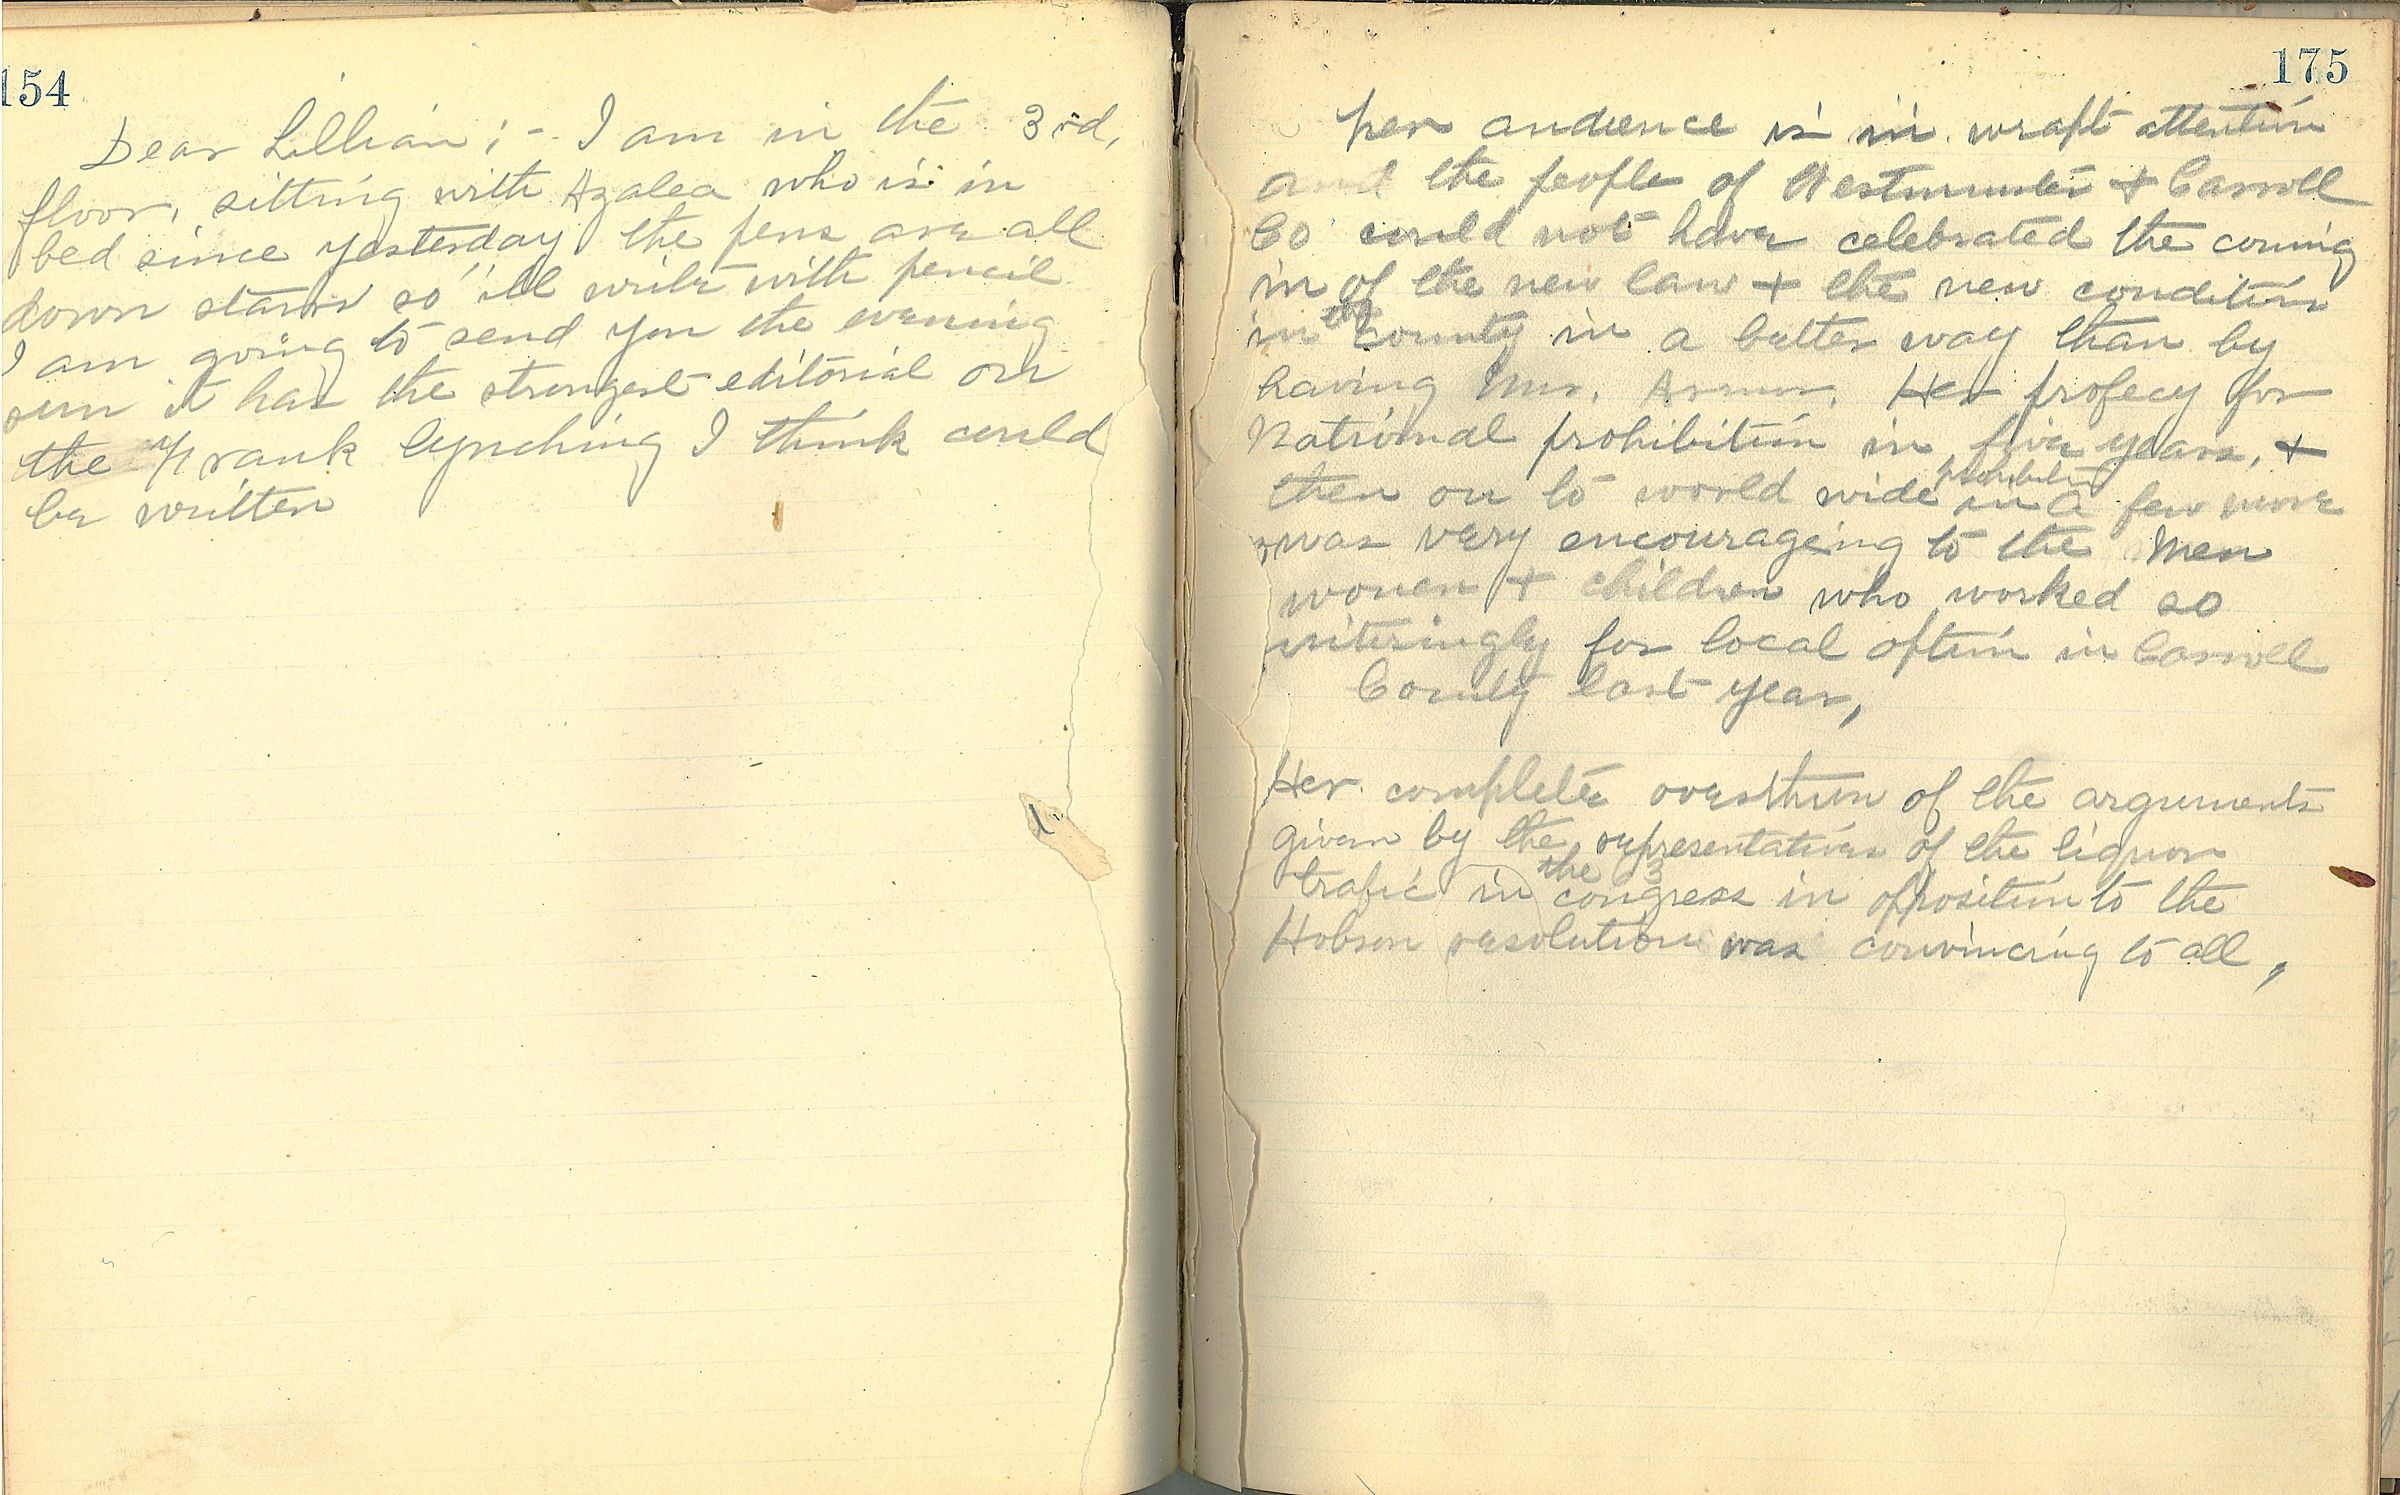 154
Dear Lillian; - I am in the 3rd,
floor, sitting with Azalea who is in
bed since yesterday the pens are all
down stairs so i'll write with pencil
I am going to send you the evening
sun it has the strongest editorial on
the Frank lynching I think could
be written
175
her audience is in wrapt attention
and the people of Westminster + Carroll
Co could not have celebrated the coming
in of the new law + the new condition
in the county in a better way than by
having Mrs. Armor. Her profecy for
National prohibition in five years, +
then on to world wide prohibition in a few more
was very encourageing to the Men
women + children who worked so
for local option in Carroll
County last year,
Her complete of the arguments
given by the representatives of the liquor
trafic in the 63 congress in opposition to the
Hobson resolution was convincing to all,